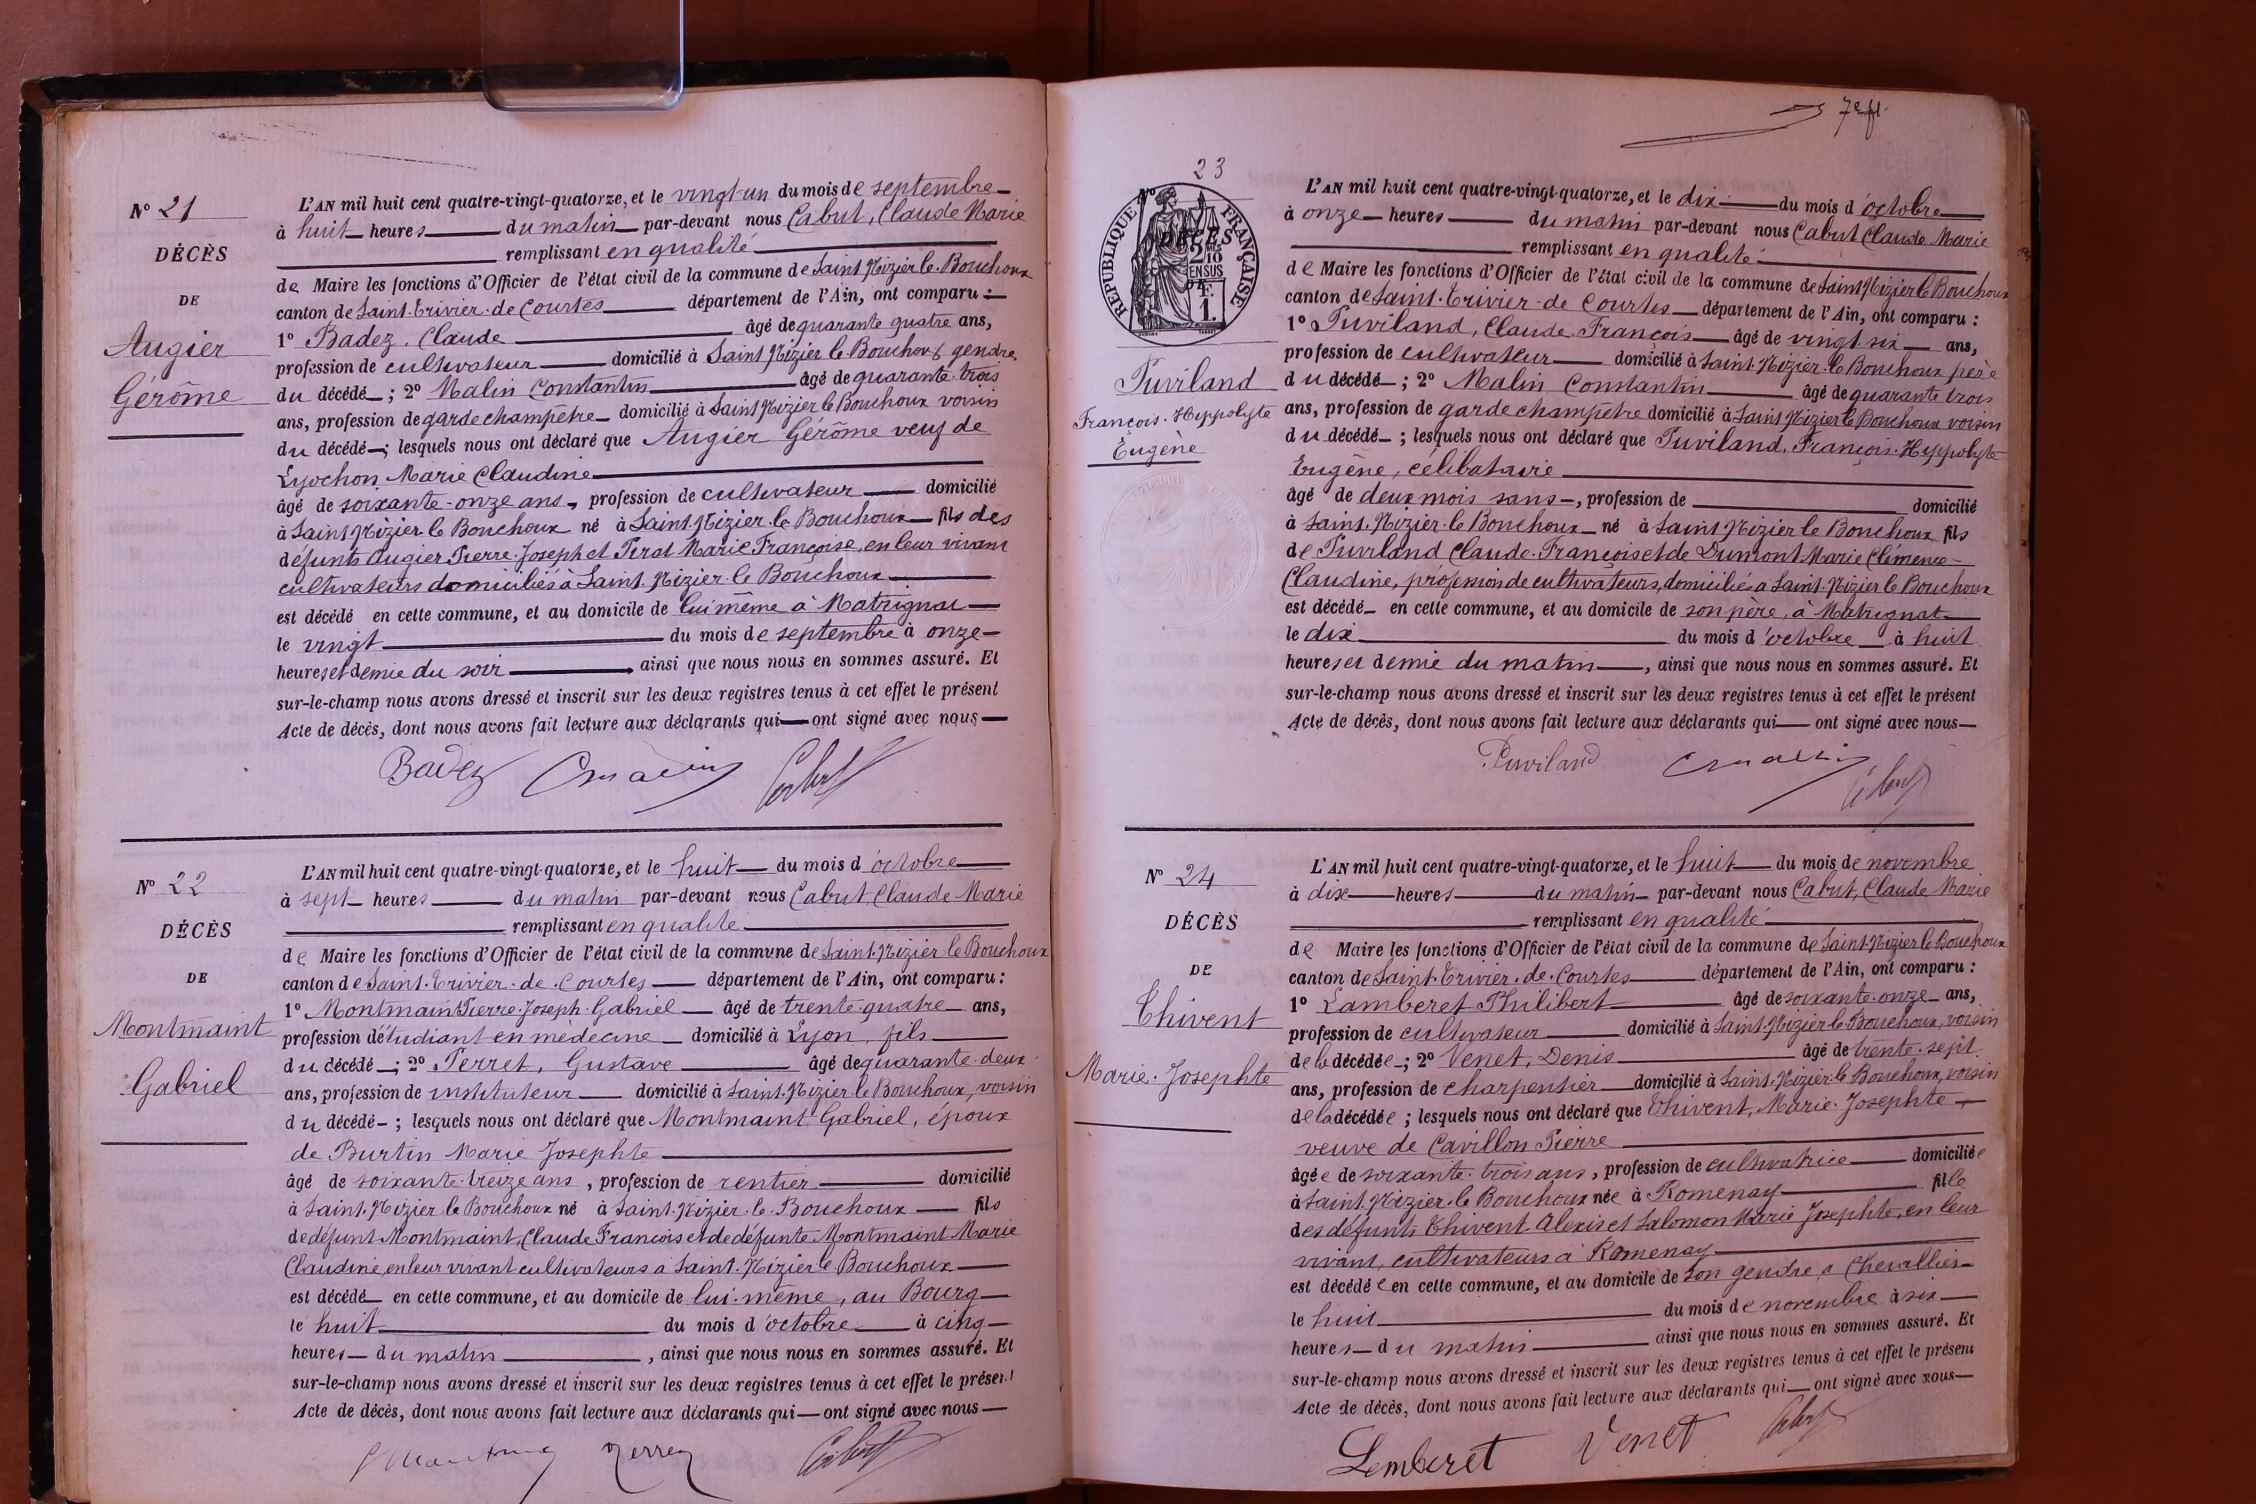 N° 21
DÉCÈS
DE
Augier
Gérôme
L'AN mil huit cent quatre-vingt-quatorze, et le vingt-un du mois de septembre
à huit heures du matin par-devant nous Cabut, Claude Marie
remplissant en qualité
de Maire les fonctions d'Officier de l'état civil de la commune de Saint-Nizier-le-Bouchoux
canton de Saint-Trivier-de-Courtes département de l'Ain, ont comparu :
1° Badez, Claude âgé de quarante quatre ans,
profession de cultivateur domicilié à Saint Nizier le Bouchoux gendre
du décédé ; 2° Malin Constantin âgé de quarante-trois
ans, profession de garde champêtre domicilié à Saint Nizier le Bouchoux voisin
du décédé ; lesquels nous ont déclaré que Augier Gérôme veuf de
Lyochon Marie Claudine
âgé de soixante-onze ans, profession de cultivateur domicilié
à Saint Nizier le Bouchoux né à Saint-Nizier-le-Bouchoux fils des
défunts Augier Pierre-Joseph et Perat Marie Françoise, en leur vivant
cultivateurs domiciliés à Saint-Nizier-le-Bouchoux
est décédé en cette commune, et au domicile de lui même à Matrignat
le vingt du mois de septembre à onze
heures et demie du soir ainsi que nous nous en sommes assuré. Et
sur-le-champ nous avons dressé et inscrit sur les deux registres tenus à cet effet le présent
Acte de décès, dont nous avons fait lecture aux déclarants qui ont signé avec nous
Badez Cmalin Cabut
N° 22
DÉCÈS
DE
Montmaint
Gabriel
L'AN mil huit cent quatre-vingt-quatorze, et le huit du mois d'octobre
à sept heures du matin par-devant nous Cabut Claude Marie
remplissant en qualité
de Maire les fonctions d'Officier de l'état civil de la commune de Saint-Nizier le Bouchoux
canton de Saint-Trivier-de-Courtes département de l'Ain, ont comparu :
1° Montmaint Pierre-Joseph-Gabriel âgé de trente-quatre ans,
profession d'étudiant en médecine domicilié à Lyon, fils
du décédé ; 2° Perret, Gustave âgé de quarante-deux
ans, profession de instituteur domicilié à Saint-Nizier le Bouchoux, voisin
du décédé ; lesquels nous ont déclaré que Montmaint Gabriel, époux
de Burtin Marie Josephte
âgé de soixante-treize ans, profession de rentier domicilié
à Saint-Nizier le Bouchoux né à Saint-Nizier-le-Bouchoux fils
de défunt Montmaint, Claude François et de défunte Montmaint Marie
Claudine, en leur vivant cultivateurs à Saint-Nizier le Bouchoux
est décédé en cette commune, et au domicile de lui-même, au Bourg
le huit du mois d'octobre à cinq
heures du matin, ainsi que nous nous en sommes assuré. Et
sur-le-champ nous avons dressé et inscrit sur les deux registres tenus à cet effet le présent
Acte de décès, dont nous avons fait lecture aux déclarants qui ont signé avec nous
Perret Cabut
7e ft
23
N°
RÉPUBLIQUE FRANÇAISE
DÉCÈS
2/10 EN SUS
1 F.
Puviland
François-Hyppolyte
Eugène
L'AN mil huit cent quatre-vingt-quatorze, et le dix du mois d'octobre
à onze heures du matin par-devant nous Cabut Claude Marie
remplissant en qualité
de Maire les fonctions d'Officier de l'état civil de la commune de Saint Nizier le Bouchoux
canton de Saint-Trivier-de-Courtes département de l'Ain, ont comparu :
1° Puviland, Claude François âgé de vingt six ans,
profession de cultivateur domicilié à Saint-Nizier-le-Bouchoux père
du décédé ; 2° Malin Constantin âgé de quarante trois
ans, profession de garde champêtre domicilié à Saint Nizier le Bouchoux voisin
du décédé ; lesquels nous ont déclaré que Puviland, François-Hyppolyte
Eugène, célibataire
âgé de deux mois sans, profession de domicilié
à Saint-Nizier-le-Bouchoux né à Saint Nizier le Bouchoux fils
de Puviland Claude-François et de Dumont Marie Clémence
Claudine, profession de cultivateurs, domiciliés à Saint-Nizier le Bouchoux
est décédé en cette commune, et au domicile de son père, à Matrignat
le dix du mois d'octobre à huit
heures et demie du matin, ainsi que nous nous en sommes assuré. Et
sur-le-champ nous avons dressé et inscrit sur les deux registres tenus à cet effet le présent
Acte de décès, dont nous avons fait lecture aux déclarants qui ont signé avec nous
Puviland Cmalin Cabut
N° 24
DÉCÈS
DE
Thivent
Marie-Josephte
L'AN mil huit cent quatre-vingt-quatorze, et le huit du mois de novembre
à dix heures du matin par-devant nous Cabut, Claude Marie
remplissant en qualité
de Maire les fonctions d'Officier de l'état civil de la commune de Saint-Nizier le Bouchoux
canton de Saint-Trivier-de-Courtes département de l'Ain, ont comparu :
1° Lamberet Philibert âgé de soixante-onze ans,
profession de cultivateur domicilié à Saint-Nizier le Bouchoux, voisin
de la décédée ; 2° Venet, Denis âgé de trente-sept
ans, profession de charpentier domicilié à Saint-Nizier-le Bouchoux, voisin
de la décédée ; lesquels nous ont déclaré que Thivent, Marie-Josephte
veuve de Cavillon Pierre
âgée de soixante-trois ans, profession de cultivatrice domiciliée
à Saint-Nizier-le Bouchoux née à Romenay fille
des défunts Thivent Alexis et Salomon Marie Josephte, en leur
vivant, cultivateurs à Romenay
est décédée en cette commune, et au domicile de son gendre, à Chevallier
le huit du mois de novembre à six
heures du matin ainsi que nous nous en sommes assuré. Et
sur-le-champ nous avons dressé et inscrit sur les deux registres tenus à cet effet le présent
Acte de décès, dont nous avons fait lecture aux déclarants qui ont signé avec nous
Lemberet Venet Cabut